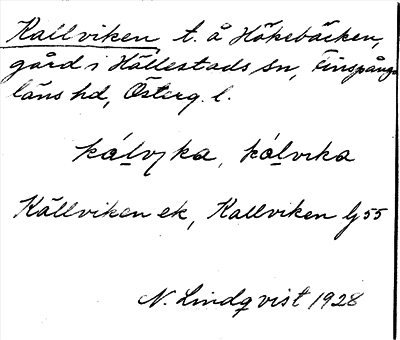 Kallviken t. å Hökebäcken,
gård i Hällestads sn, Finspånga
läns hd, Österg. l.
kálvıka, kálvıka
Källviken ek, Kallviken Gj 55
N. Lindqvist 1928